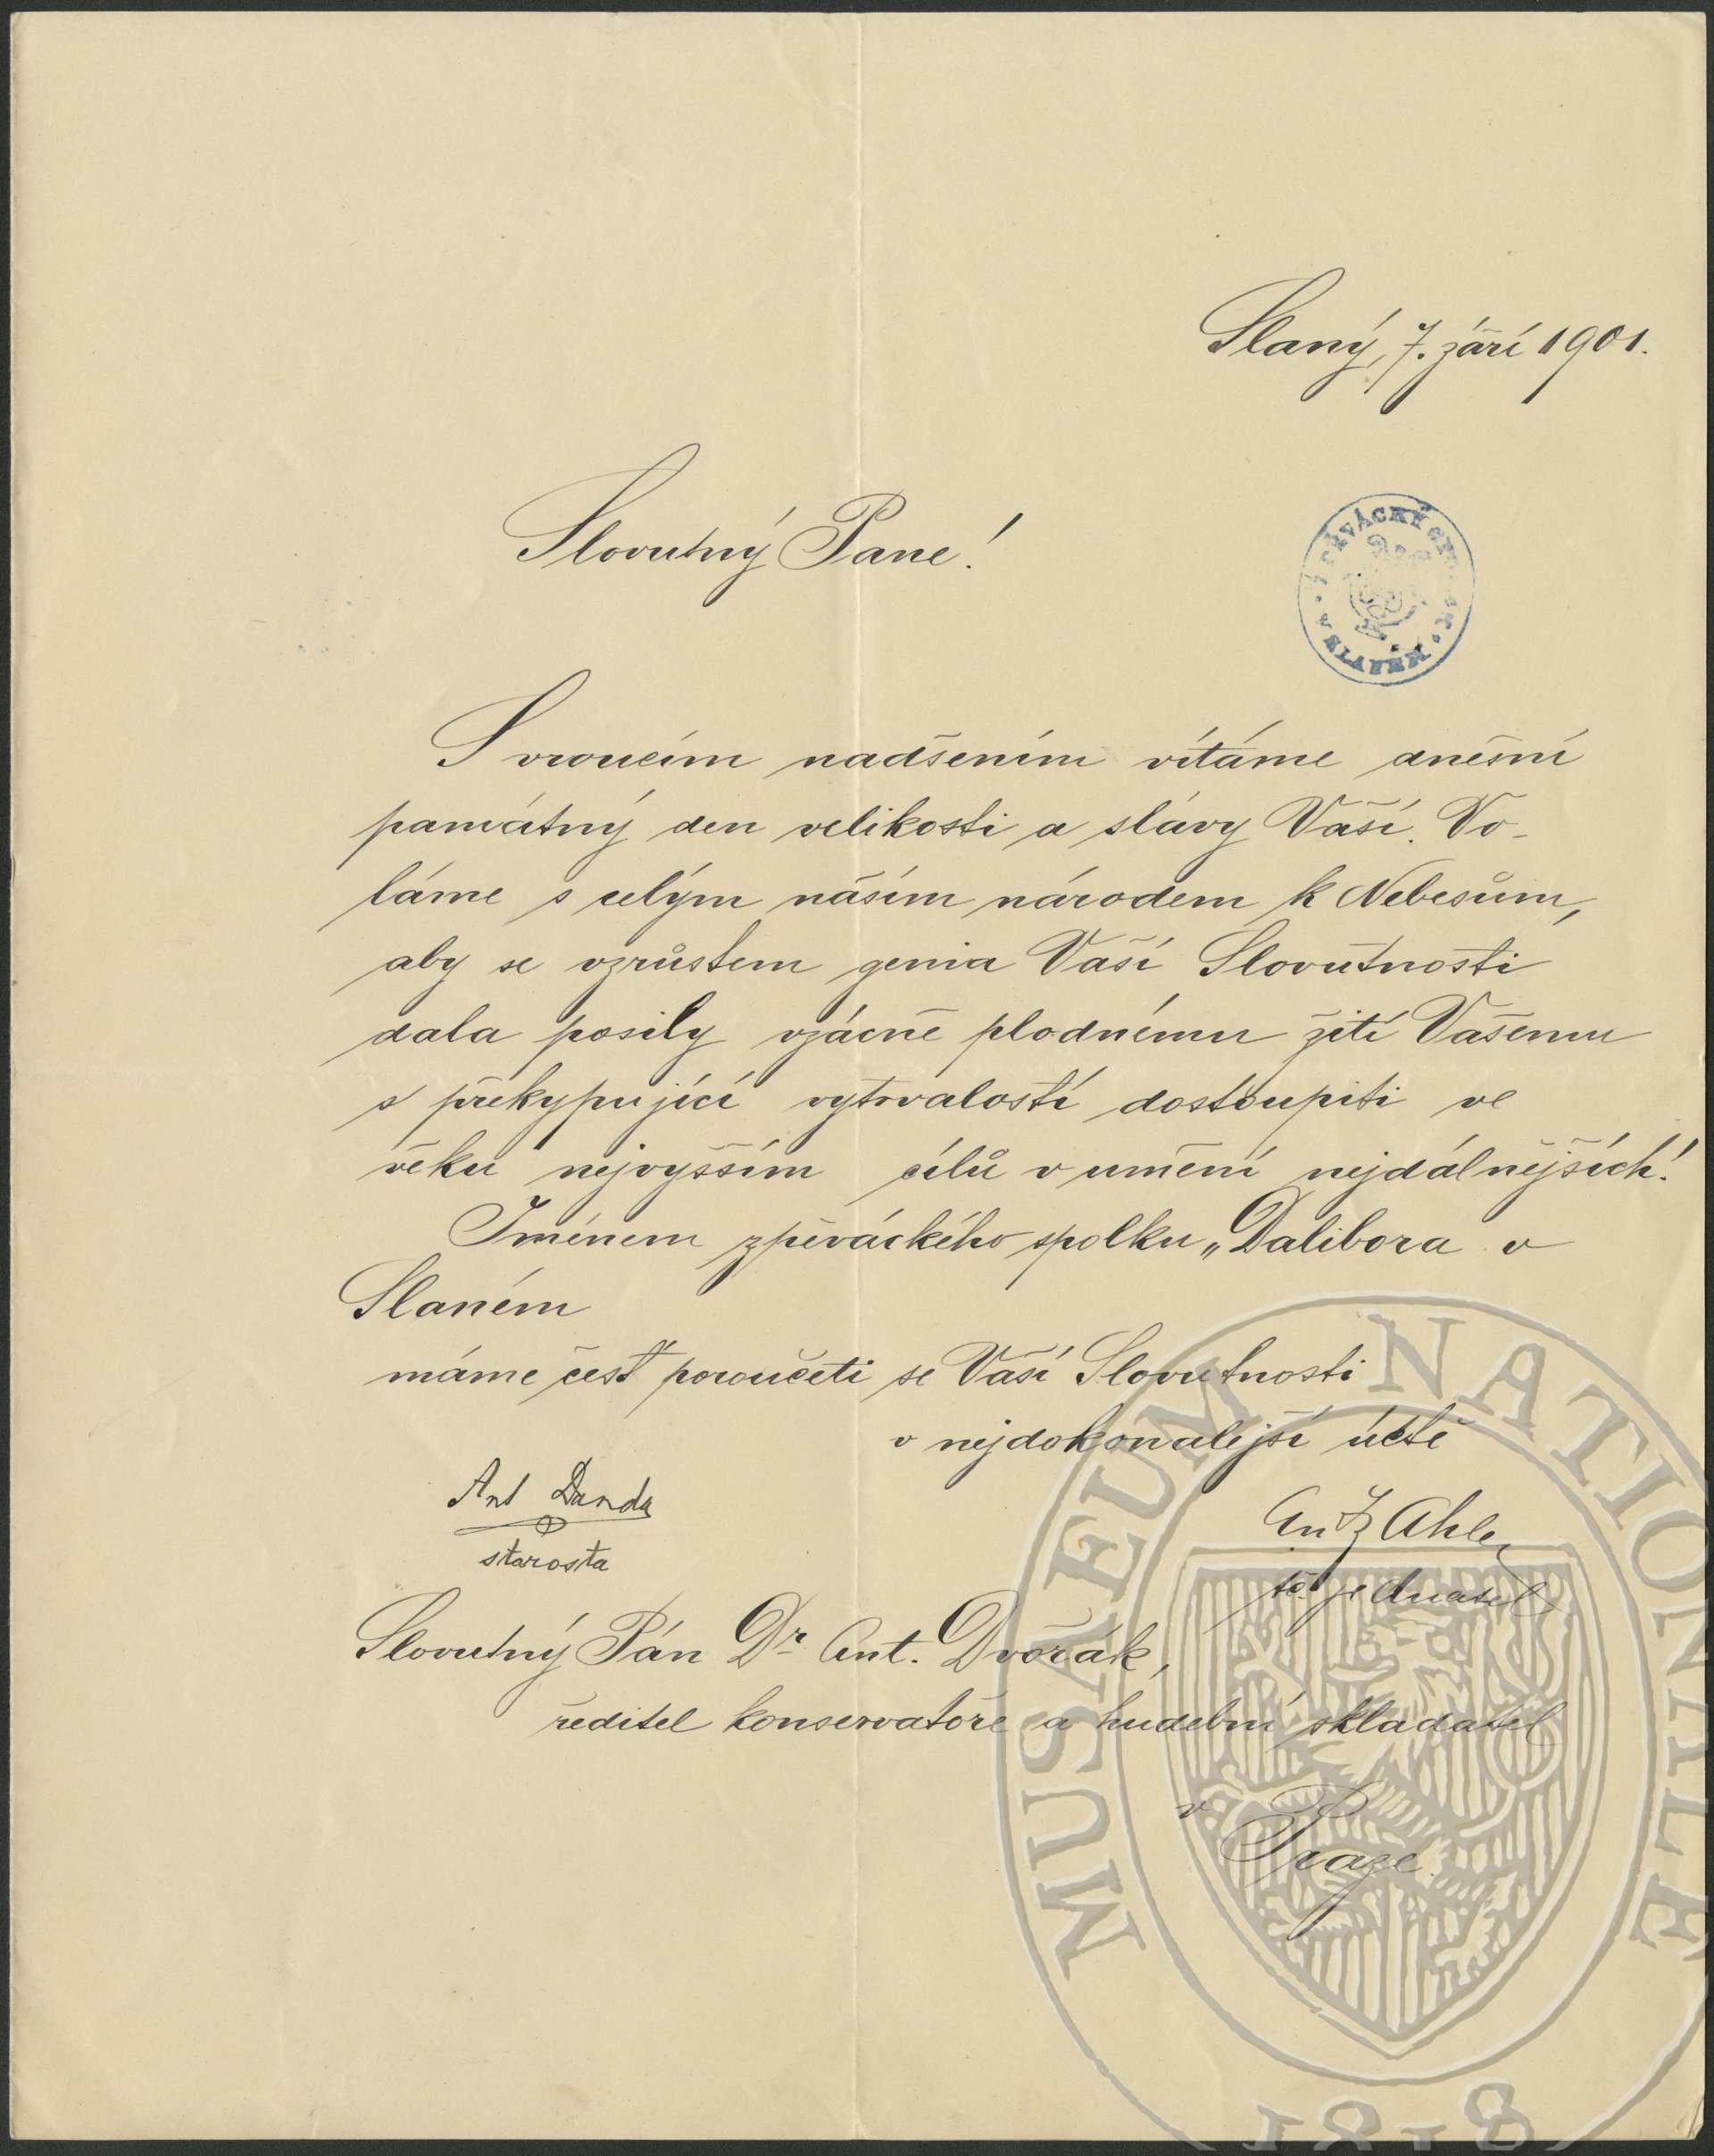 Slaný, 7. září 1901.
Slovutný Pane!
S vroucím nadšením vítáme dnešní
památný den velikosti a slávy Vaší. Vo-
láme s celým naším národem k Nebesům,
aby se vzrůstem genia Vaší Slovutnosti
dala posily vzácně plodnému žití Vašemu
s překypující vytrvalostí dostoupiti ve
věku nejvyšším cílů v umění nejdálnějších!
Jménem zpěváckého spolku „Dalibora v
Slaném
máme čest poroučeti se Vaší Slovutnosti
v nejdokonalejší úctě
Ant Danda
starosta
jednatel
Slovutný Pán Dr Ant. Dvořák,
ředitel konservatoře a hudební skladatel
v
Praze.
MUSAEUM NATIONALE
1818